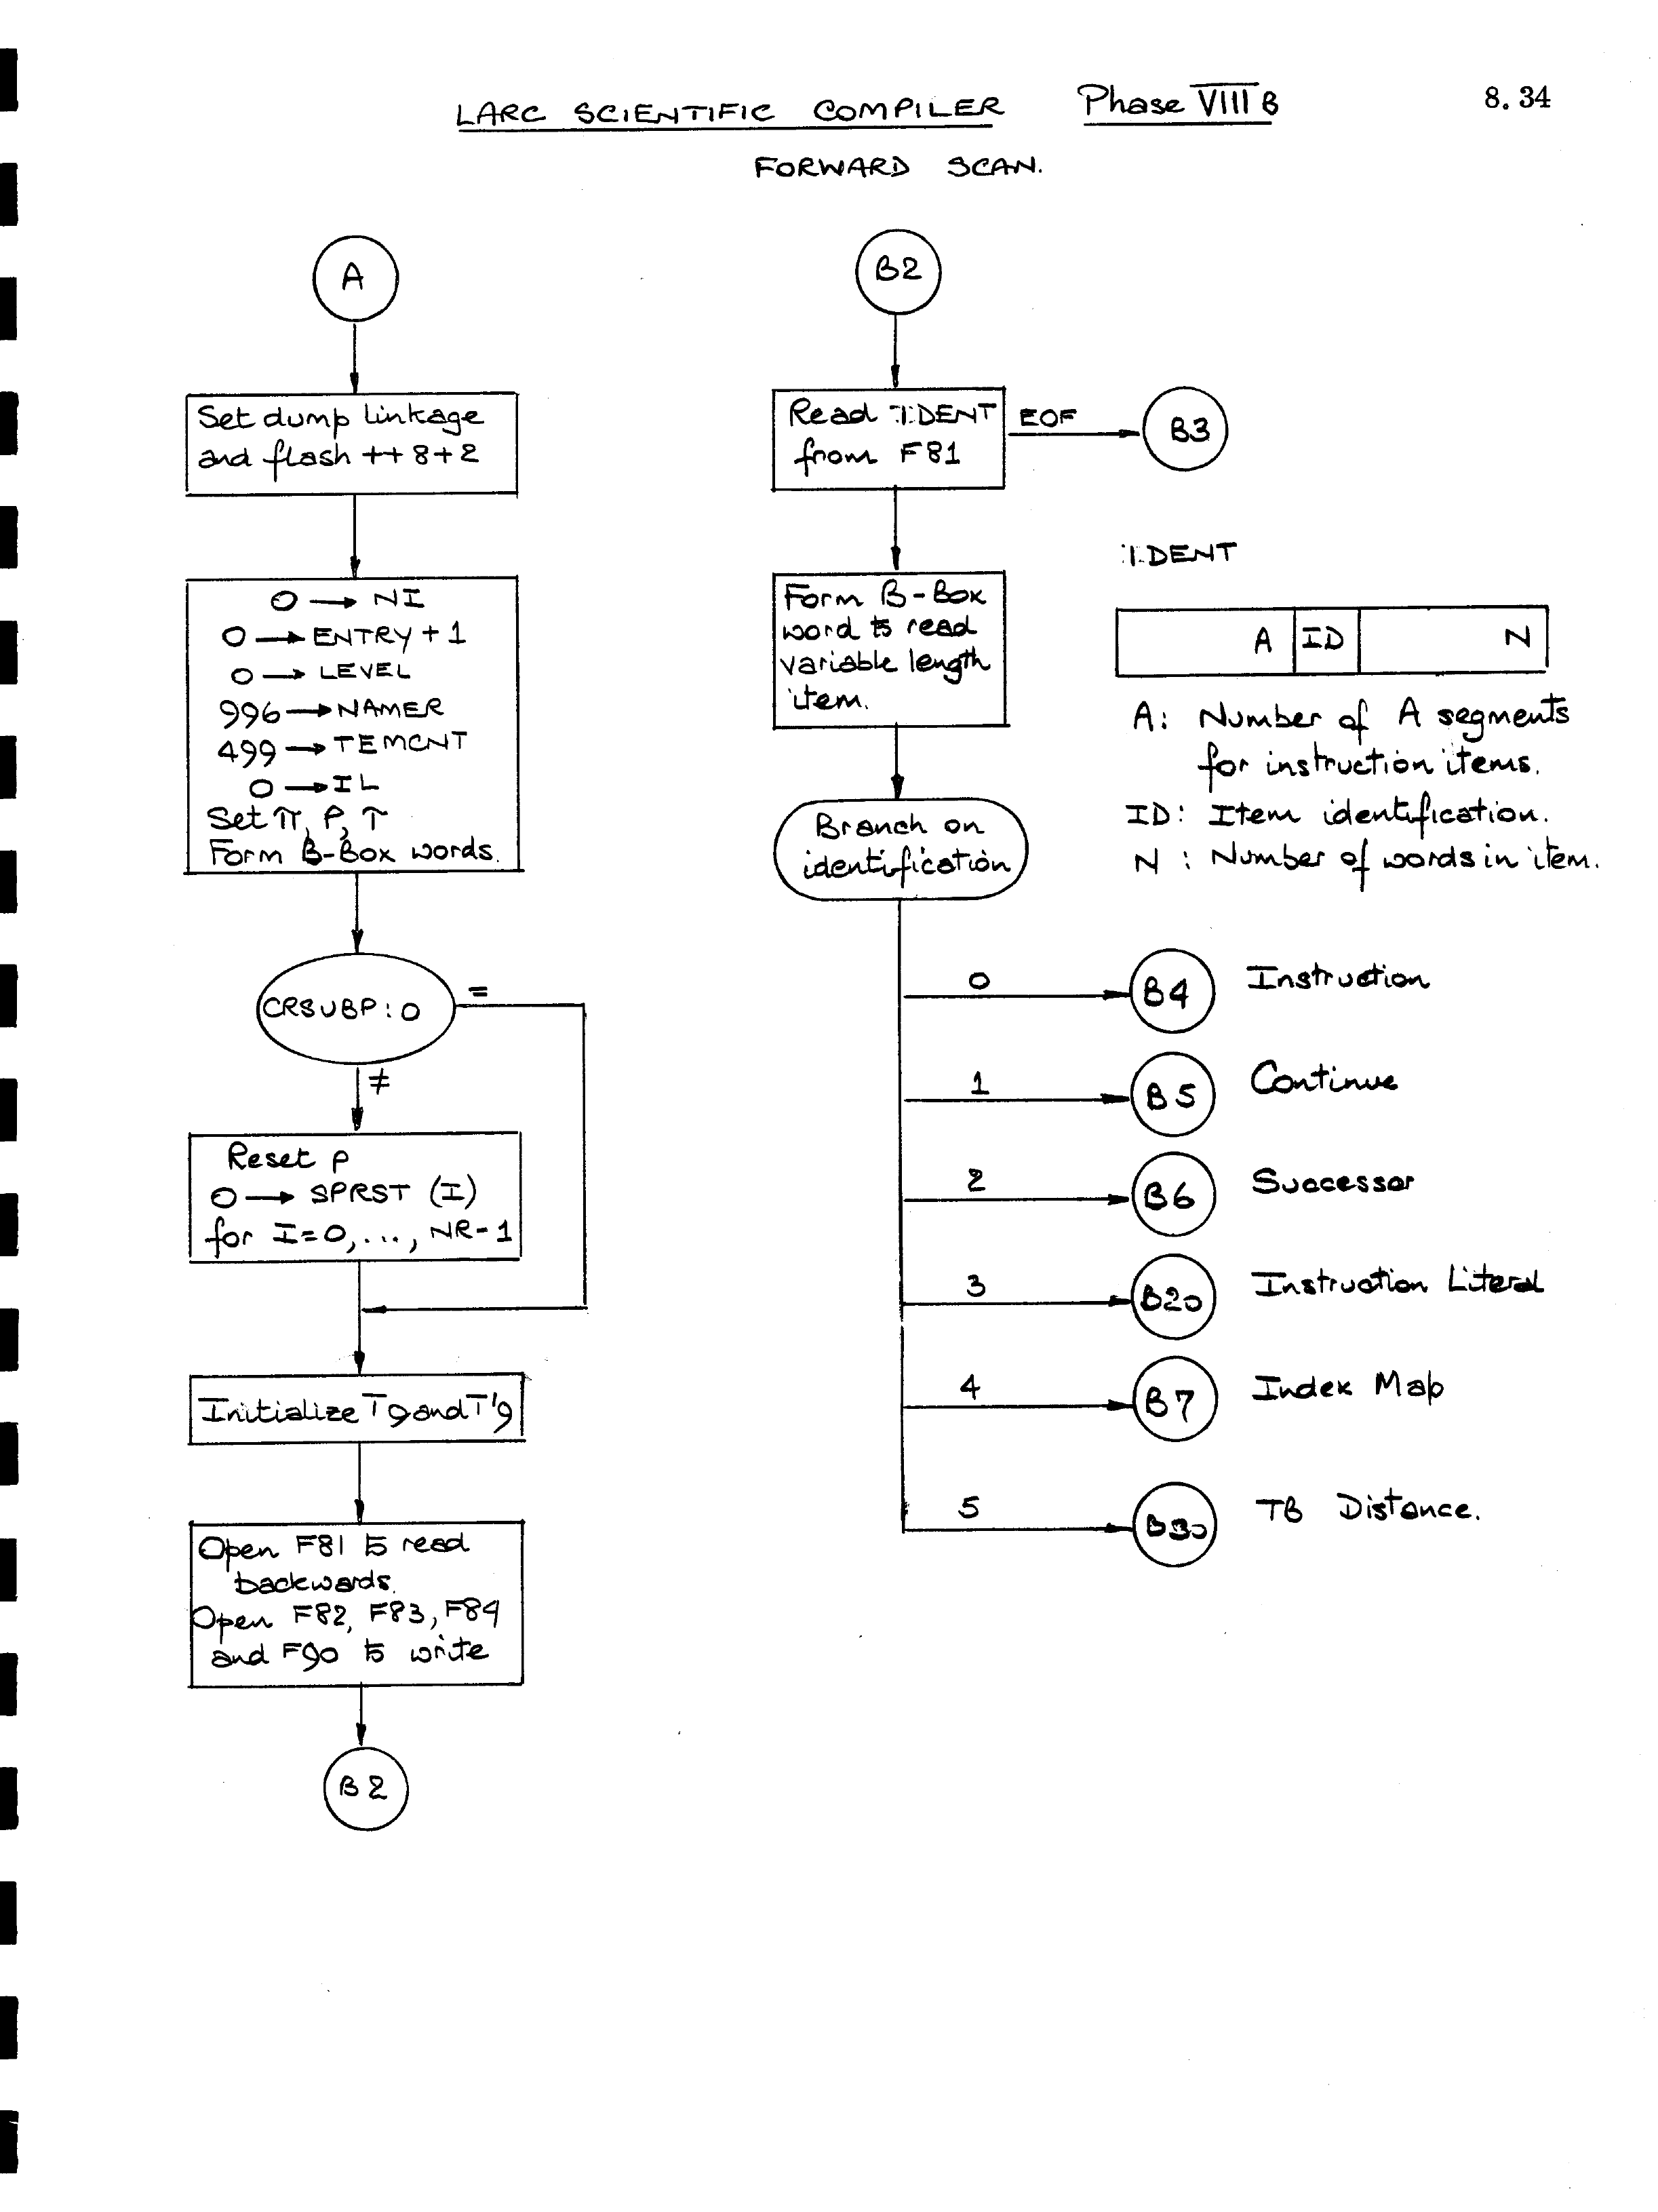 LARC SCIENTIFIC COMPILER Phase VIII B
8.34
FORWARD SCAN.
A
Set dump linkage
and flash ++ 8+2
0 → NI
0 → ENTRY + 1
0 → LEVEL
996 → NAMER
499 → TEMCNT
0 → IL
Set π, ρ, τ
Form B-Box words.
CRSUBP : 0
=
≠
Reset ρ
0 → SPRST (I)
for I=0, ..., NR-1
Initialize T9 and T'9
Open F81 to read
backwards.
Open F82, F83, F84
and F90 to write
B2
B2
Read :I:DENT
from F81
EOF
B3
Form B-Box
word to read
variable length
item.
Branch on
identification
:I:DENT
A ID N
A: Number of A segments
for instruction items.
ID: Item identification.
N : Number of words in item.
0 B4 Instruction
1 B5 Continue
2 B6 Successor
3 B20 Instruction Literal
4 B7 Index Map
5 B30 TB Distance.